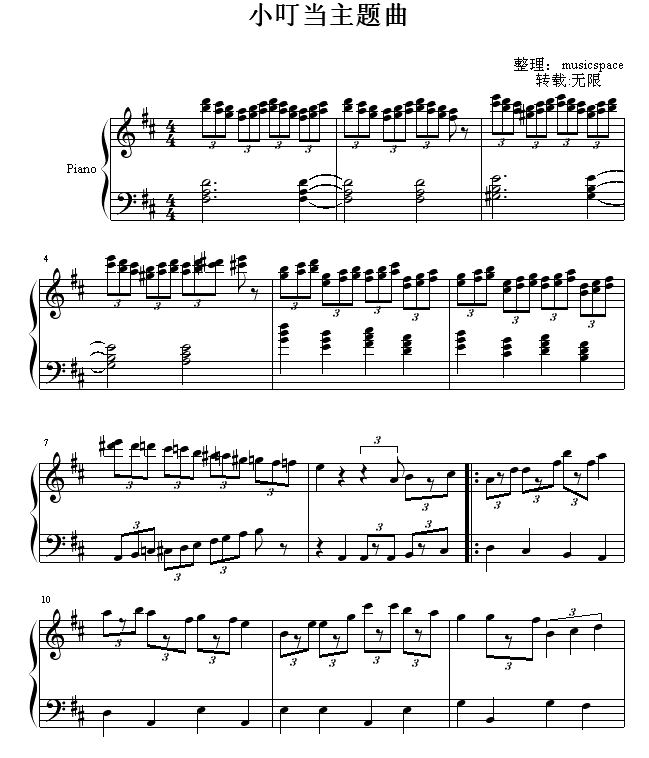 小叮当主题曲
整理：musicspace
转载:无限
Piano
3 3 3 3 3 3 3 3 3 3 3
4
3 3 3 3 3 3 3 3 3 3 3
7
3 3 3 3 3 3 3 3
3 3 3 3
10
3 3 3 3 3 3 3 3